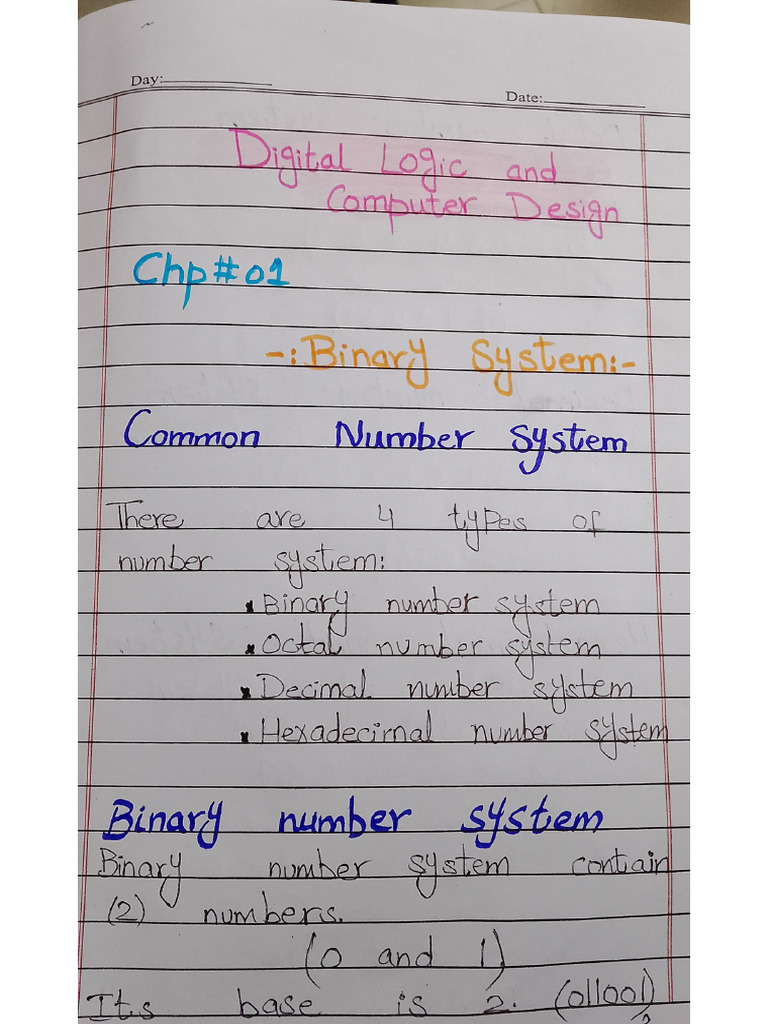 Day:
Date:
Digital Logic and
Computer Design
Chp#01
-:Binary System:-
Common Number System
There are 4 types of
number system:
• Binary number system
• Octal number system
• Decimal number system
• Hexadecimal number system
Binary number system
Binary number system contain
(2) numbers.
(0 and 1)
Its base is 2. (011001)